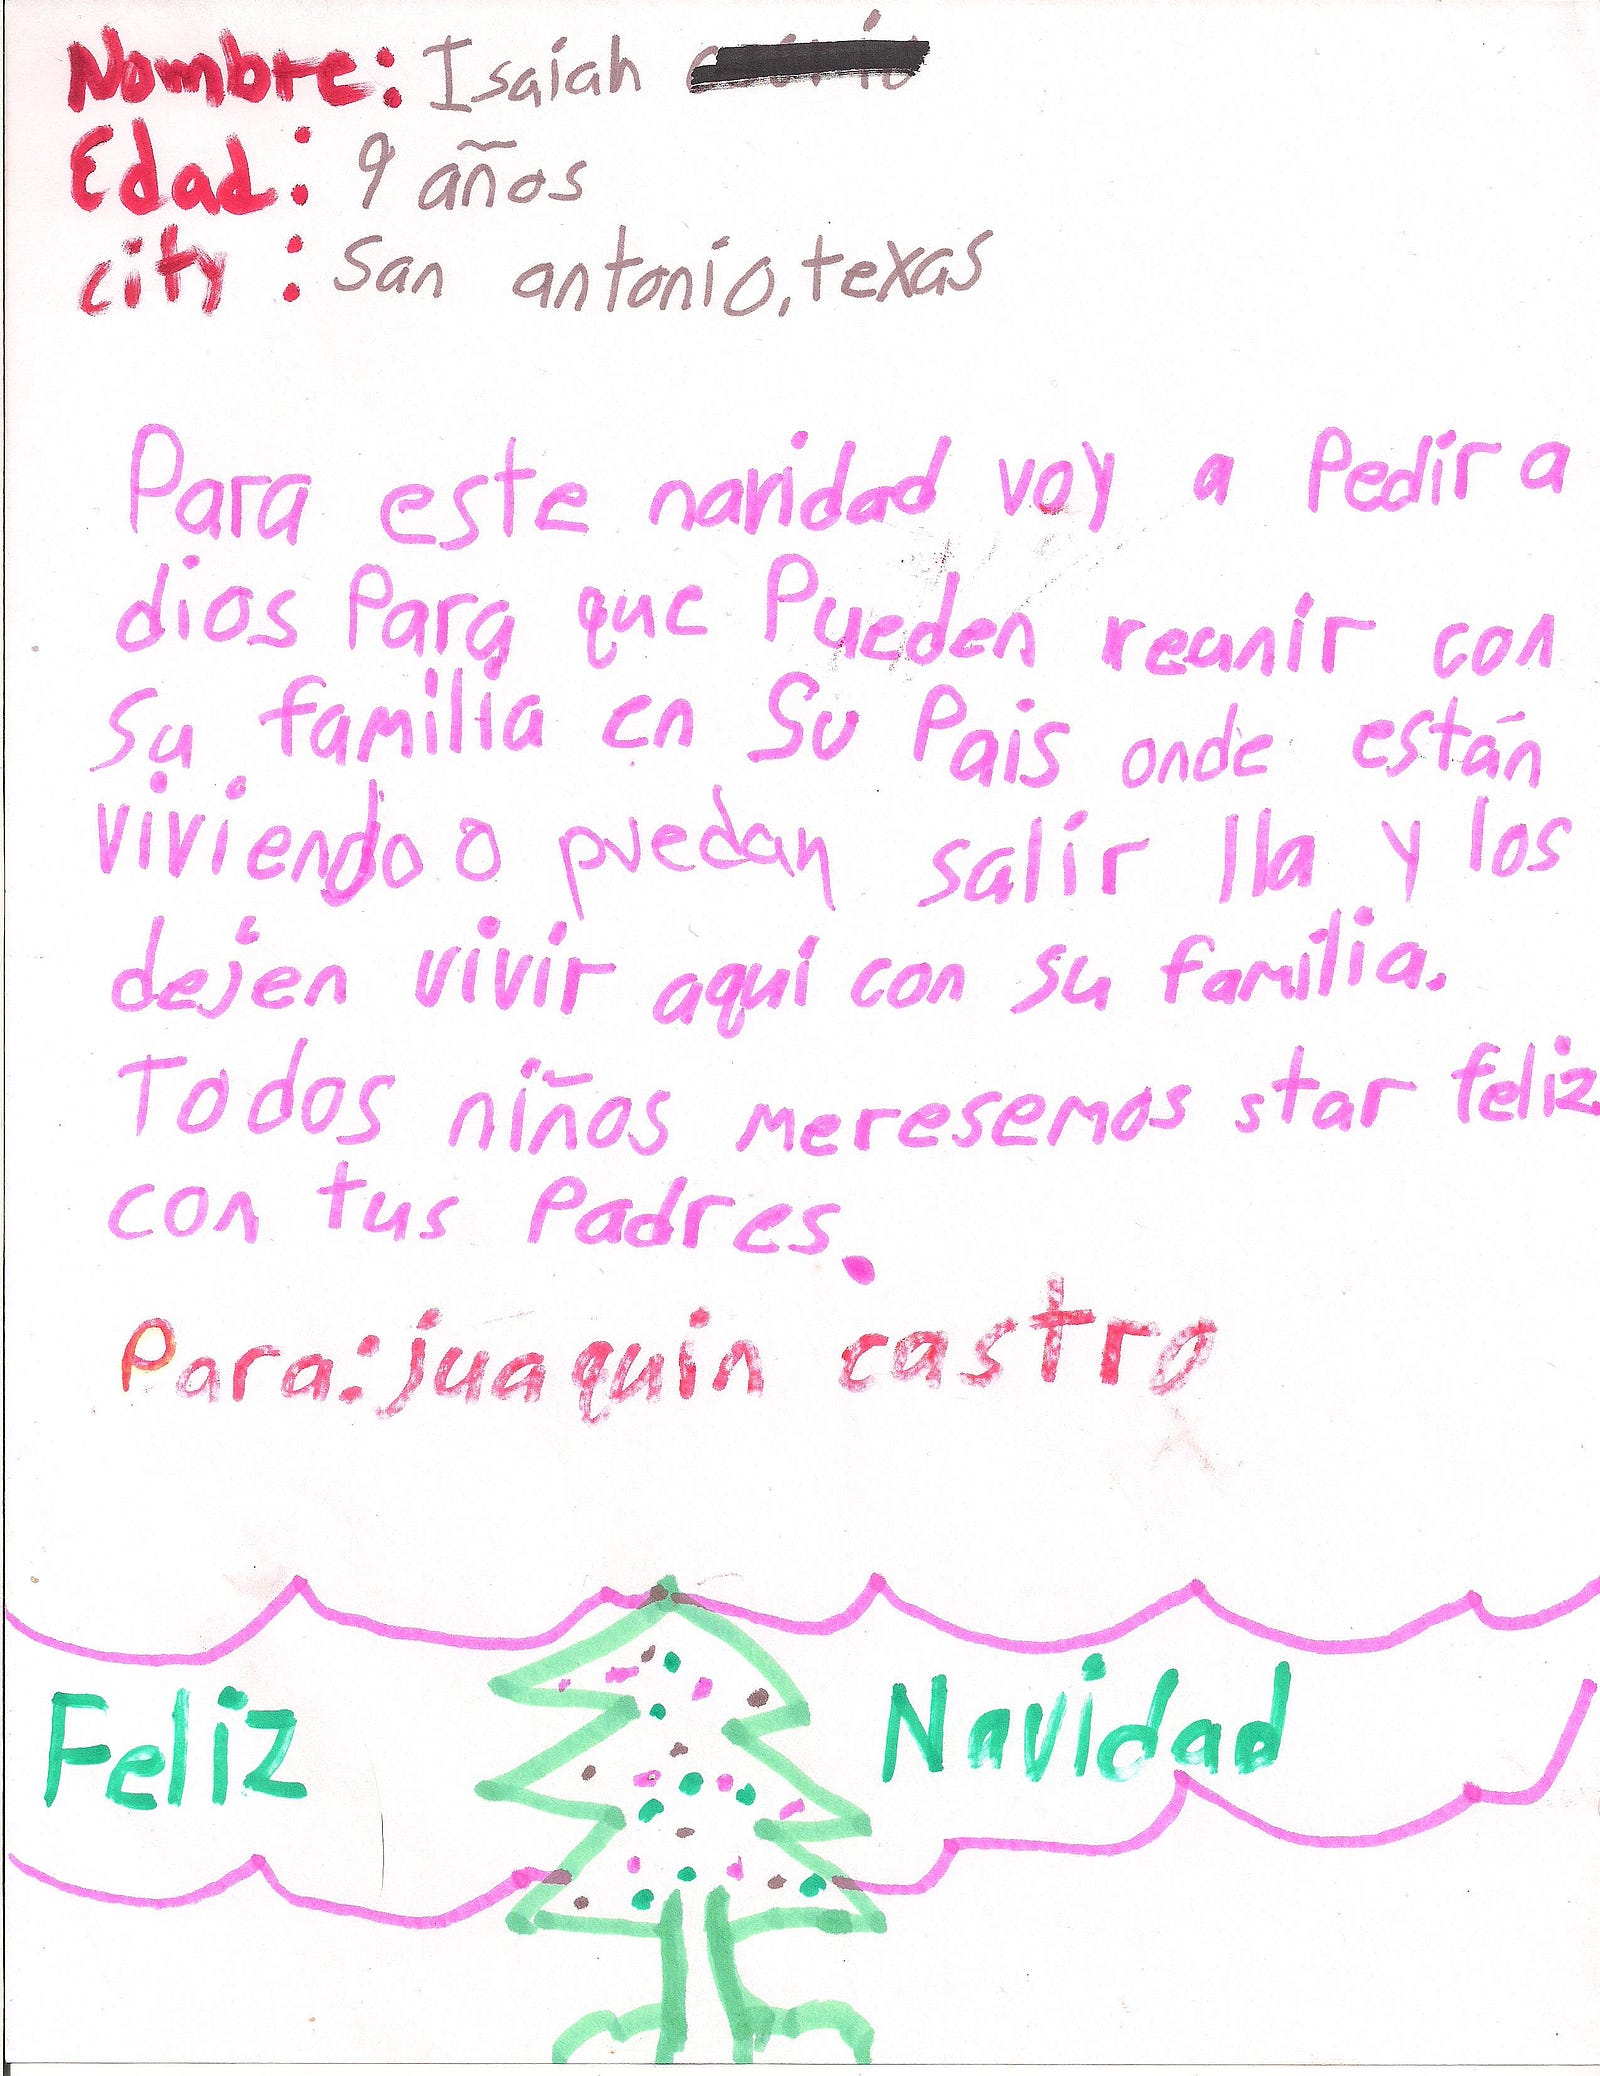 Nombre: Isaiah
Edad: 9 años
city : San antonio, texas
Para este navidad voy a Pedir a
dios Para que Pueden reunir con
su familia en Su Pais onde están
viviendo o puedan salir lla y los
dejen vivir aqui con su familia.
Todos niños meresemos star feliz
con tus Padres.
Para: juaquin castro
Feliz Navidad